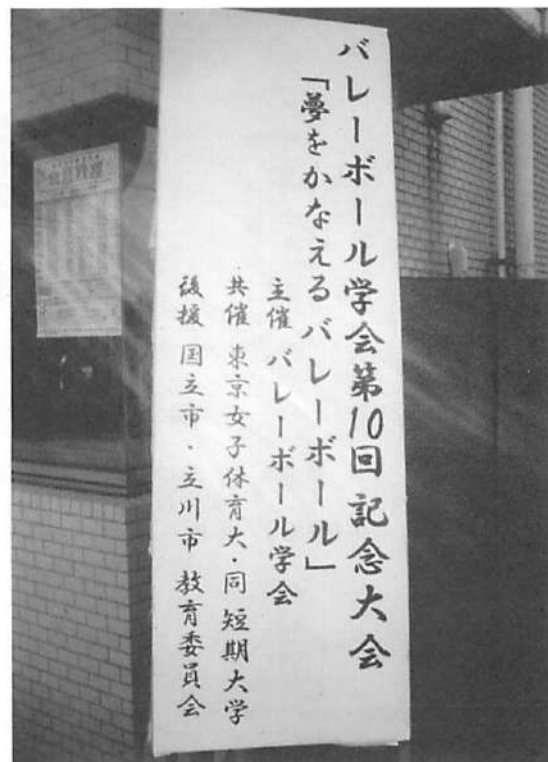 バレーボール学会第10回記念大会
「夢をかなえるバレーボール」
主催 バレーボール学会
共催 東京女子体育大・同短期大学
後援 国立市・立川市教育委員会